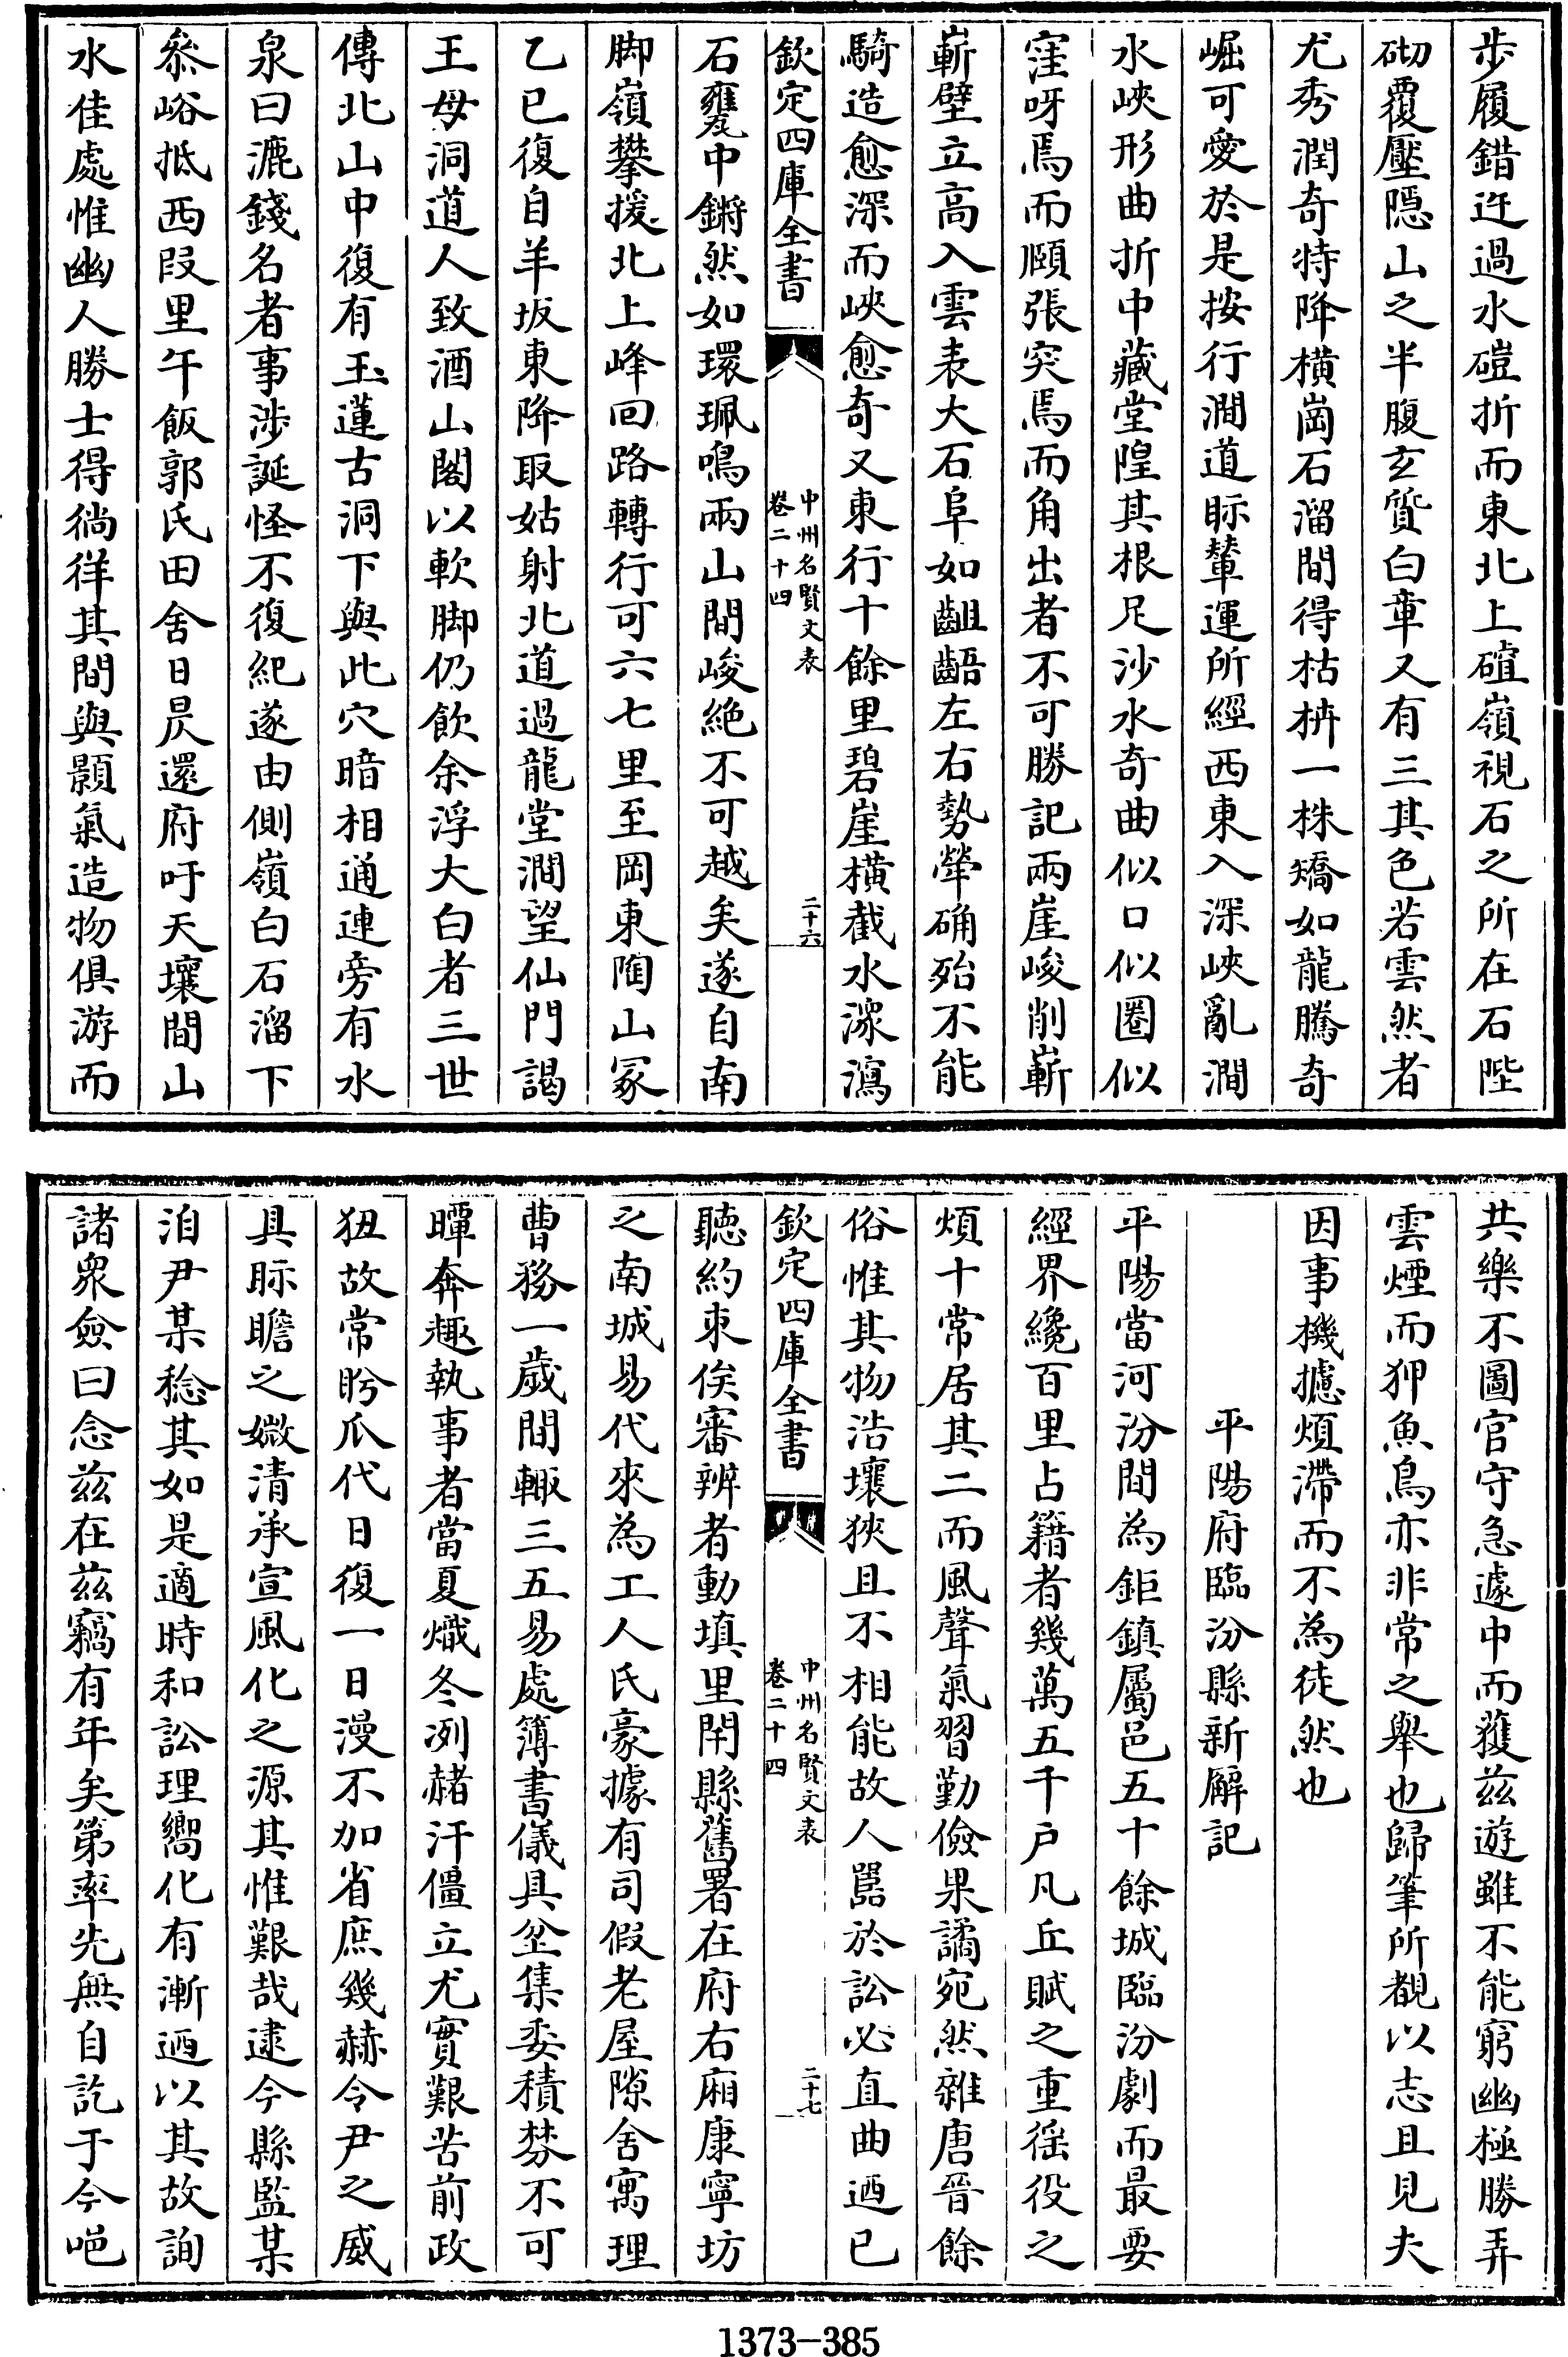 步履錯迕過水磑折而東北上礶嶺視石之所在石陛
砌覆壓隱山之半腹玄質白章又有三其色若雲然者
尤秀潤奇特降橫崗石溜間得枯枿一株矯如龍騰奇
崛可愛於是按行澗道眎輦運所經西東入深峽亂澗
水峽形曲折中藏堂隍其根足沙水奇曲似口似圈似
窪呀焉而頤張突焉而角出者不可勝記兩崖峻削嶄
嶄壁立高入雲表大石阜如齟齬左右勢犖确殆不能
騎造愈深而峽愈奇又東行十餘里碧崖橫截水潨瀉
欽定四庫全書
中州名賢文表
卷二十四
二十六
石甕中鏘然如環珮鳴兩山間峻絶不可越矣遂自南
脚嶺攀援北上峰回路轉行可六七里至岡東陶山冢
乙巳復自羊坂東降取姑射北道過龍堂澗望仙門謁
王母洞道人致酒山閣以軟脚仍飲余浮大白者三世
傳北山中復有玉蓮古洞下與此穴暗相通連旁有水
泉曰漉錢名者事渉誕怪不復紀遂由側嶺白石溜下
叅峪抵西段里午飯郭氏田舍日昃還府吁天壤間山
水佳處惟幽人勝士得徜徉其間與顥氣造物俱游而
共樂不圖官守急遽中而獲兹遊雖不能窮幽極勝弄
雲煙而狎魚鳥亦非常之舉也歸筆所覩以志且見夫
因事機攄煩滯而不為徒然也
平陽府臨汾縣新廨記
平陽當河汾間為鉅鎮屬邑五十餘城臨汾劇而最要
經界纔百里占籍者幾萬五千戶凡丘賦之重徭役之
煩十常居其二而風聲氣習勤儉果譎宛然雜唐晉餘
俗惟其物浩壤狹且不相能故人嚚於訟必直曲迺已
欽定四庫全書
中州名賢文表
卷二十四
二十七
聽約束俟審辨者動填里閈縣舊署在府右廂康寧坊
之南城易代來為工人氏豪據有司假老屋隙舍寓理
曹務一歲間輙三五易處簿書儀具坌集委積棼不可
暉奔趣執事者當夏熾冬冽赭汗僵立尤實艱苦前政
狃故常眎瓜代日復一日漫不加省庶幾赫令尹之威
具眎瞻之媺清承宣風化之源其惟艱哉逮今縣監某
洎尹某稔其如是適時和訟理嚮化有漸迺以其故詢
諸衆僉曰念兹在兹竊有年矣第率先無自訖于今吧
1373-385